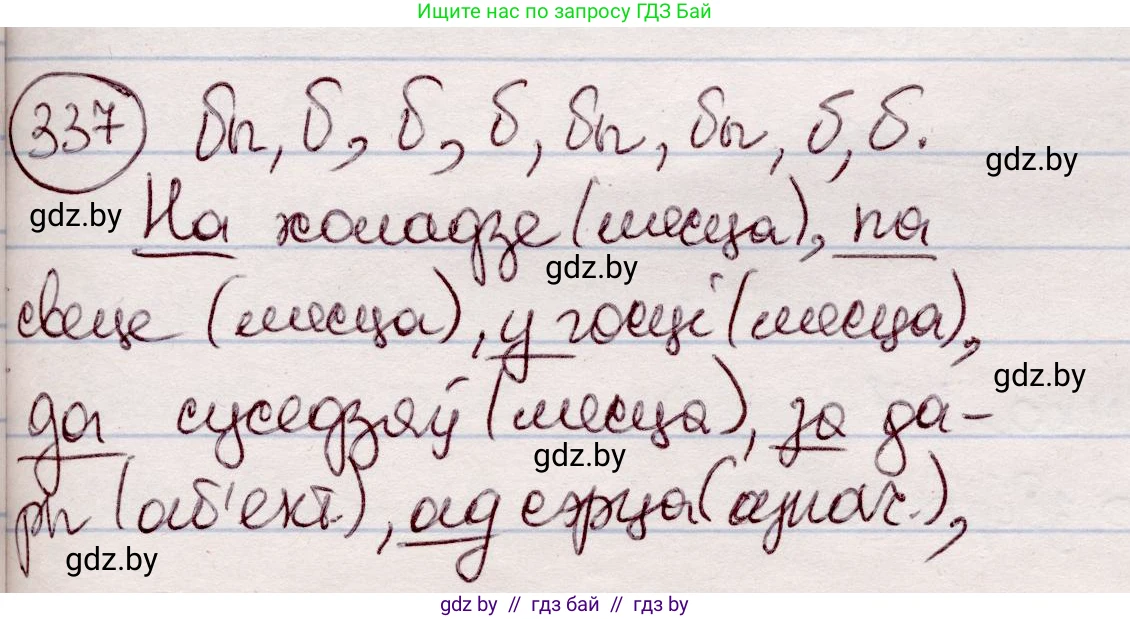 Ищите нас по запросу ГДЗ Бай
337 бы, б, б, б, бы, бы, б, б.
gdz.by
gdz.by
На холадзе (месца), па
gdz.by
свеце (месца), у госці (месца),
gdz.by
да суседзяў (месца), за да-
gdz.by
ры (аб'ект.), ад сэрца (азнач.),
gdz.by
gdz by // гдз бай // gdz by